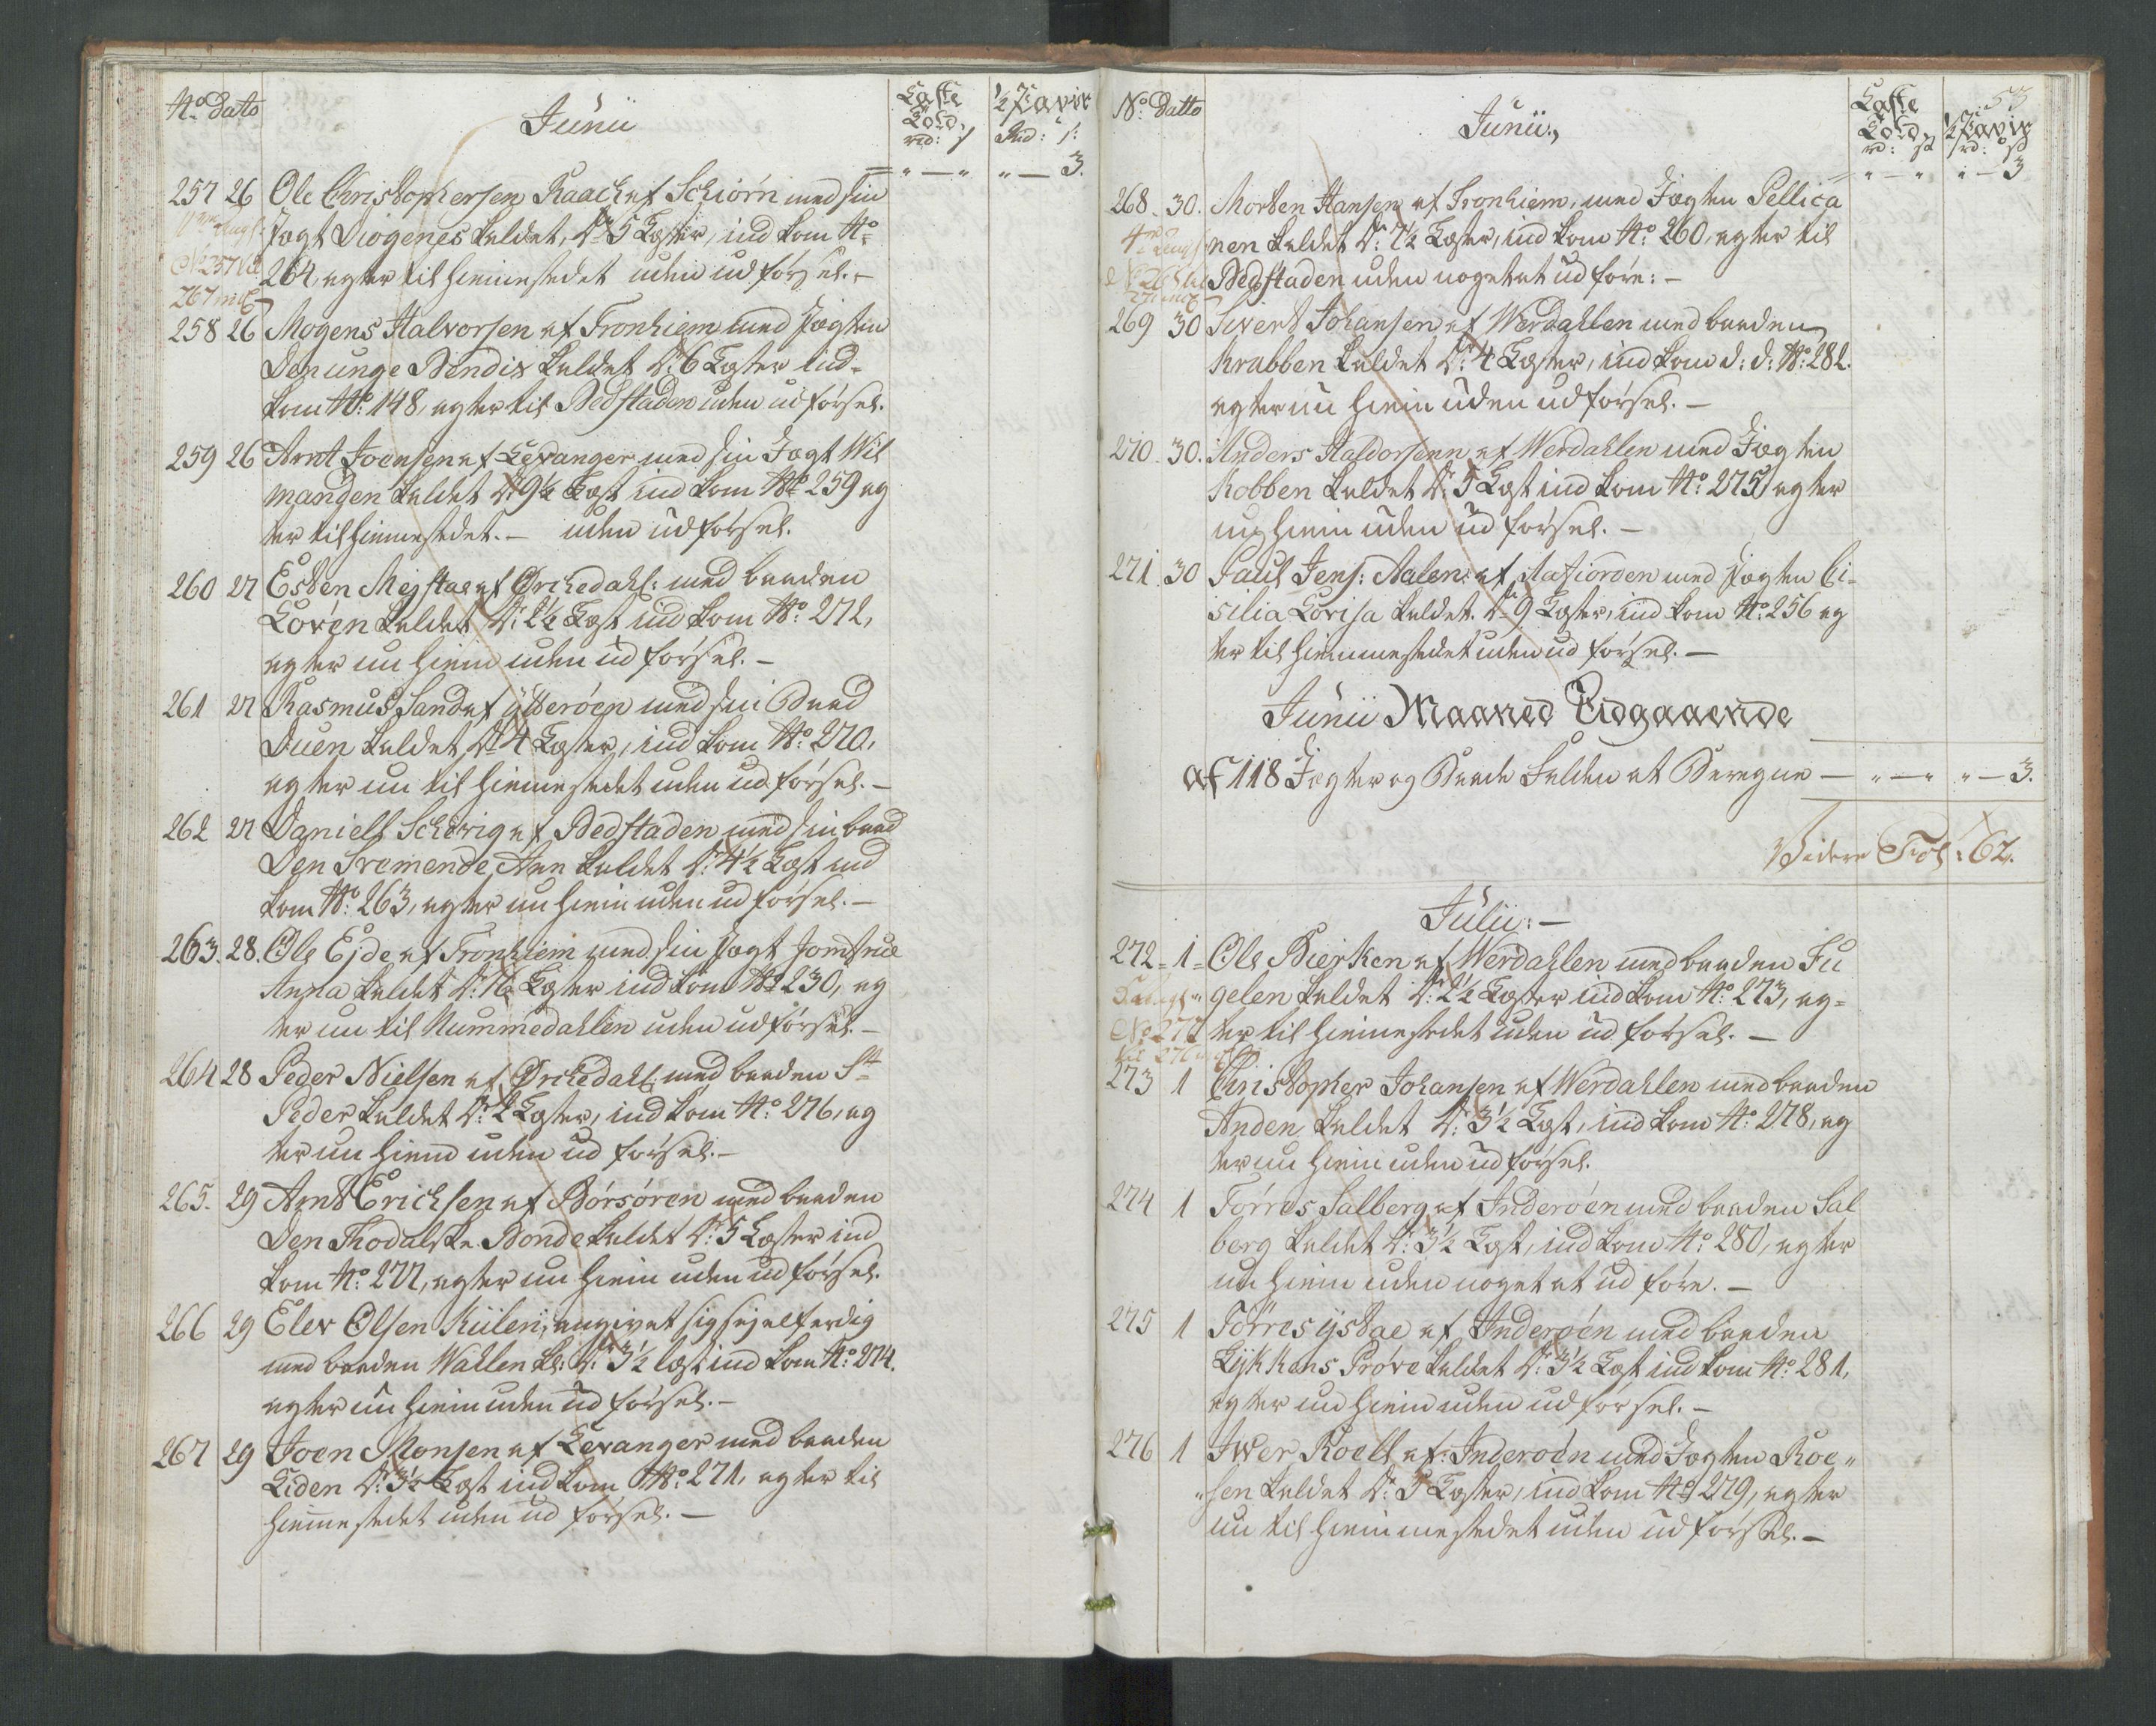 No Dato
Junii
Casse
Told,
rd: s
½ Tavir
Rd: s:
" — " " — 3.
257 26 Ole Christophersen Raach af Schiørn med sin
Jagt Diogenes kaldet, Dr: 5 Læster, ind kom No
264, agter til hiemestedet uden udførsel. —
No 257 til
267 incl
258 26 Mogens Halvorsen af Tronhiem med Jagten
Den unge Bendix kaldet Dr: 6 Læster ind-
kom No: 148, agter til Bedstaden uden udførsel.
259 26 Arnt Joensen af Levanger med sin Jagt Wil
manden kaldet Dr: 9½ Læst ind kom No 259 ag
ter til hiemestedet. — uden udførsel.
260 27 Esten Mejstae af Ørchedahl: med baaden
Løven kaldet Dr: 2½ Læst ind kom No: 272,
agter nu hiem uden udførsel. —
261 27 Rasmus Sand af ytterøen med sin Baad
Duen kaldet Dr 4 Læster, ind kom No: 270,
agter nu til hiemestedet uden udførsel. —
262 27 Daniell Schevig af Bedstaden med sin baad
Den Svemende Ann kaldet Dr: 4½ Læst ind
kom No: 263, agter nu hiem uden udførsel. —
263. 28. Ole Ejde af Tronhiem med sin Jagt Jomfrue
Anna kaldet Dr: 16 Læster ind kom No 230, ag
ter nu til Nummedahlen uden udførsel. —
264 28 Peder Nielsen af Ørchedahl: med baaden St
Peder kaldet Dr: 2 Læster, ind kom No: 276, ag
ter nu hiem uden udførsel. —
265. 29 Arnt Erichsen af Børsøren med baaden
Den Thodalske Bonde kaldet Dr: 5 Læster ind
kom No: 277, agter nu hiem uden udførsel.
266 29 Elev Olsen Küilen, angivet sig sejelferdig
med baaden Wahlen kl: Dr: 3½ læst ind kom No: 274.
agter nu hiem uden udførsel. —
267 29 Joen Monsen af Levanger med baaden
Liden Dr: 3½ Læst ind kom No: 271, agter til
hiemestedet uden udførsel. —
53
No: Datto
Junii.,
Casse
Told,
rd: s
½ Tavir
rd: s
" — " " — 3
268. 30. Morten Hansen af Tronhiem, med Jagten Pellica
nen kaldet Dr: 7½ Læster, ind kom No: 260, agter til
Bedstaden uden noget at udføre: —
No 268 til
271 incl
269 30 Sivert Johansen af Werdahlen med baaden
Krabben kaldet Dr: 4 Læster, ind kom d: d: No: 282.
agter nu hiem uden udførsel. —
270. 30. Anders Haldorsenn af Werdahlen med Jagten
Kobben kaldet Dr: 5 Læst ind kom No: 275, agter
nu hiem uden udførsel. —
271. 30 Paul Jens: Aalen: af Aafiorden med Jagten Ci-
silia Lovisa kaldet. Dr 9 Læster, ind kom No: 256 ag
ter til hiemmestedet uden udførsel. —
Junii Maaned Udgaaende
af 118 Jagter og Baade Falden at Beregne — " — " " — 3.
Videre Fol: 62.
Julii: —
272 = 1 = Ole Bierken af Werdahlen med baaden Fu
gelen kaldet Dr: 2½ Læster ind kom No: 273, ag-
ter til hiemestedet uden udførsel. —
No 272
til 276 incl
273 1 Christopher Johansen af Werdahlen med baaden
Anden kaldet Dr: 3½ Læst, ind kom No: 278, ag
ter nu hiem uden udførsel.
274 1 Torres Salberg af Inderøen med baaden Sal
berg kaldet Dr: 3½ Læst, ind kom No: 280, agter
nu hiem uden noget at udføre. —
275 1 Törres ystae af Inderøen med baaden
Lykkens Prøve kaldet Dr: 3½ Læst ind kom No: 281,
agter nu hiem uden udførsel. —
276 1 Iwer Roell af: Inderøen med Jagten Roe„
„sen kaldet Dr: 5 Læster, ind kom No: 279, agter
nu til hiemmestedet uden udførsel. —